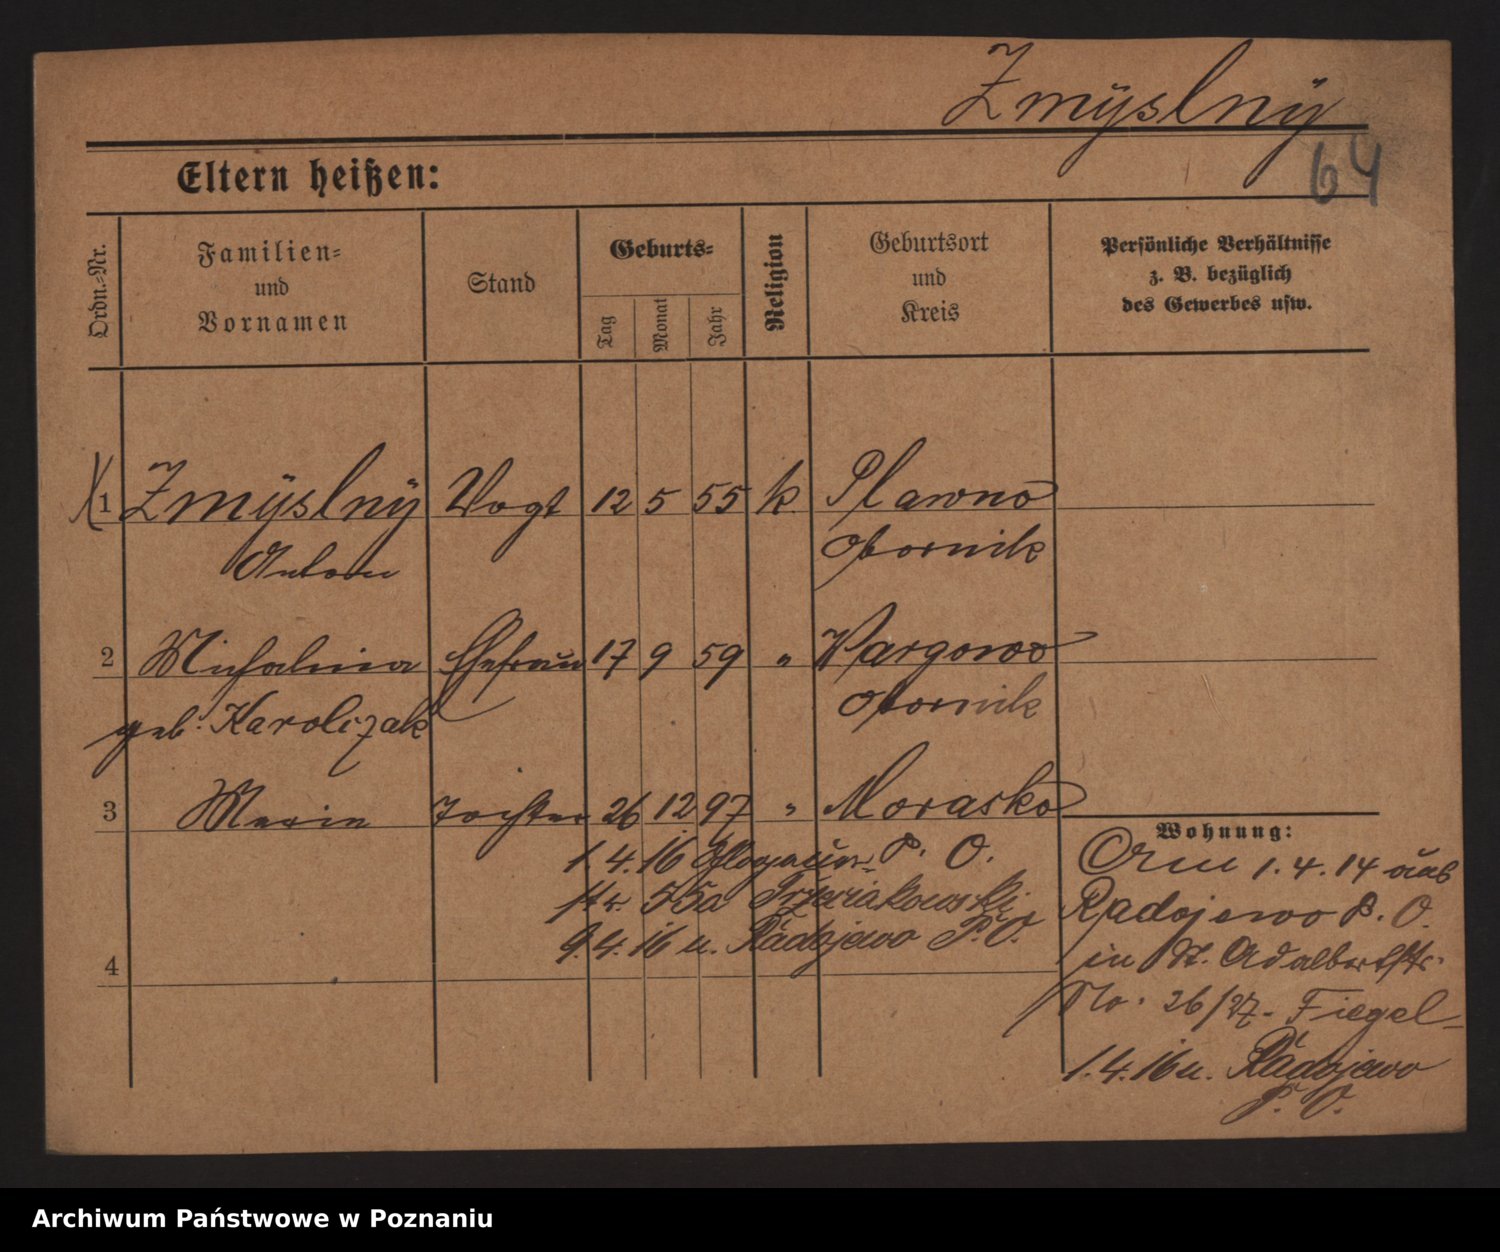 Zmÿslnÿ
64
Eltern heißen:
Ordn.-Nr.
Familien-
und
Vornamen
Stand
Geburts-
Tag
Monat
Jahr
Religion
Geburtsort
und
Kreis
Persönliche Verhältnisse
z. B. bezüglich
des Gewerbes usw.
1 Zmÿslnÿ Vogt 12 5 55 k. Plawno
Anton Obornik
2 Michalina Ehefrau 17 9 59 " Wargowo
geb. Karolczak Obornik
3 Marie Tochter 26 12 97 " Morasko
1.4.16 Glogauer- P. O.
str. 55a
9.4.16 u. Radojewo P. O.
4
Wohnung:
Am 1.4.14 aus
Radojewo P. O.
in St. Adalbertstr.
No. 26/27 - Fiegel -
1.4.16 u. Radojewo
P. O.
Archiwum Państwowe w Poznaniu